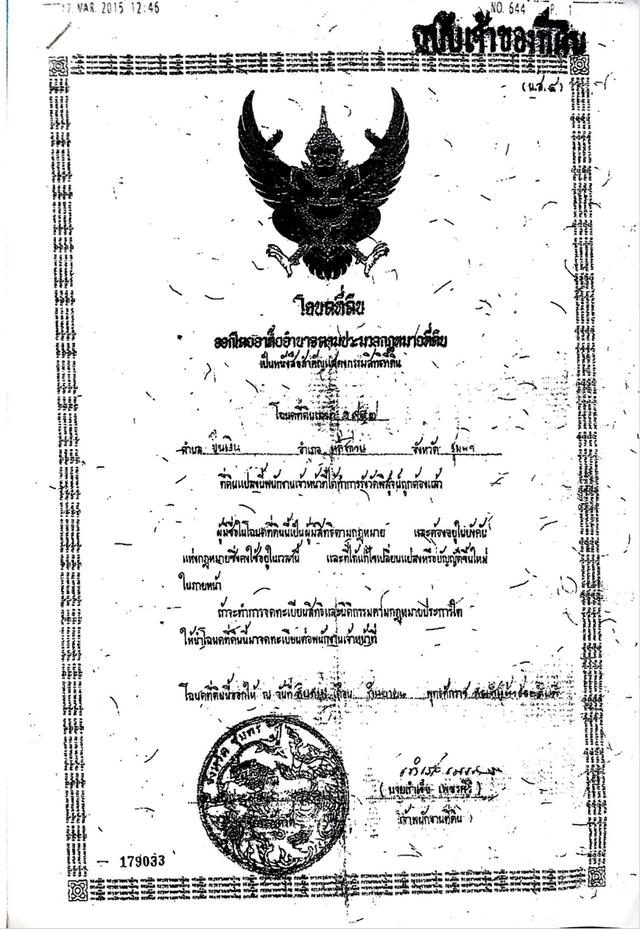 17 MAR 2015 12:46
NO. 644 P. 1
ฉบับเจ้าของที่ดิน
(น.ส.๔)
โฉนดที่ดิน
ออกโดยอาศัยอำนาจตามประมวลกฎหมายที่ดิน
เป็นหนังสือสำคัญแสดงกรรมสิทธิ์ที่ดิน
โฉนดที่ดินเลขที่
ตำบล ขันเงิน อำเภอ หลังสวน จังหวัด ชุมพร
ที่ดินแปลงนี้พนักงานเจ้าหน้าที่ได้ทำการรังวัดพิสูจน์ถูกต้องแล้ว
ผู้มีชื่อในโฉนดที่ดินนี้เป็นผู้มีสิทธิตามกฎหมาย และต้องอยู่ในบังคับ
แห่งกฎหมายซึ่งคงใช้อยู่ในเวลานี้ และที่ได้แก้ไขเปลี่ยนแปลงหรือบัญญัติขึ้นใหม่
ในภายหน้า
ถ้าจะทำการจดทะเบียนสิทธิและนิติกรรมตามกฎหมายประการใด
ให้นำโฉนดที่ดินนี้มาจดทะเบียนต่อพนักงานเจ้าหน้าที่
โฉนดที่ดินนี้ออกให้ ณ วันที่ เดือน กันยายน พุทธศักราช
จังหวัด ชุมพร
เจ้าพนักงานที่ดิน
179033